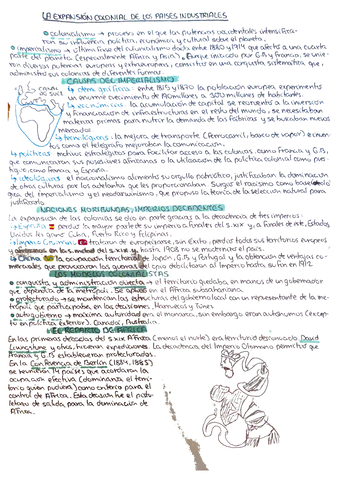 LA EXPANSIÓN COLONIAL DE LOS PAISES INDUSTRIALES
colonialismo → proceso en el que las potencias occidentales intensifica-
ron su influencia política, económica y cultural sobre el planeta.
imperialismo → última fase del colonialismo dada entre 1880 y 1914 que afectó a una cuarta
parte del planeta (especialmente África y Asia). Aunque iniciado por G.B y Francia, se unie-
ron diversas potencias europeas y extraeuropeas, consistió en una conquista sistemática que,
administró sus colonias de diferentes formas.
CAUSAS DEL IMPERIALISMO
CAUSA
DE SUEZ
demográfica: entre 1815 y 1870 la población europea experimentó
un enorme crecimiento de 190 millones a 300 millones de habitantes.
económicas: la acumulación de capital se reorientó a la inversión
y financiación de infraestructuras en el resto del mundo, se necesitaban
materias primas para nutrir la demanda de las fábricas y se buscaban nuevos
mercados.
tecnológicas: la mejora de transporte (ferrocarril, barco de vapor) e inven-
tos como el telégrafo mejoraban la comunicación.
políticas: motivos estratégicos para facilitar acceso a las colonias, como Francia y G.B,
que comunicaron sus posesiones africanas o la utilización de la política colonial como pres-
tigio, como Francia y España.
ideológicas: el nacionalismo alimentó su orgullo patriótico, justificaban la dominación
de otras culturas por los adelantos que les proporcionaban. Surgió el racismo como base
gica del imperialismo y el neodarwinismo, que propuso la teoría de la selección natural para
justificarlo.
NACIONES MORIBUNDAS, IMPERIOS DECADENTES
La expansión de las colonias se dio en parte gracias a la decadencia de tres imperios:
España: perdió la mayor parte de su imperio a finales del S. XIX y, a finales de este, Estados
Unidos les ganó Cuba, Puerto Rico y Filipinas.
Imperio trataron de europeizarse, sin éxito, perdió todos sus territorios europeos
y africanos en la mitad del S XIX y, hasta 1908 no se modernizó el país.
China: la ocupación territorial de Japón, G.B y Portugal y la obtención de ventajas co-
merciales que provocaron las guerras del opio debilitaron al imperio hasta su fin en 1912
LOS MODELOS COLONIALISTAS
conquista y administración directa → el territorio quedaba, en manos de un gobernador
que dependía de la metrópoli. Se aplicó en el África subsahariana.
protectorado → se mantenían las estructuras del gobierno local con un representante de la me-
trópoli que participaba en las decisiones, Marruecos y Túnez
autogobierno → máxima autoridad era el monarca, sin embargo eran autónomas (excep-
to en política exterior). Canadá, Australia.
EL REPARTO DE ÁFRICA
En las primeras décadas del S XIX África (menos el norte) era territorio desconocido. David
Livingstone y otros, hicieron expediciones. La decadencia del Imperio Otomano permitió que
Francia y G.B establecieran protectorados.
En la Conferencia de Berlín (1884, 1885)
se reunieron 14 países que acordaron la
ocupación efectiva (dominarán el terri-
torio quien pudiera) como criterio para el
control de África. Esta decisión fue el pisto-
letazo de salida para la dominación de
África.